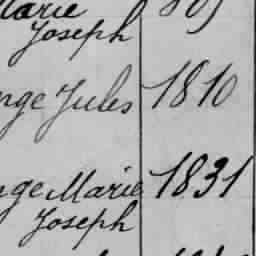 Marie
Joseph
nge Jules 1810
nge Marie 1831
Joseph